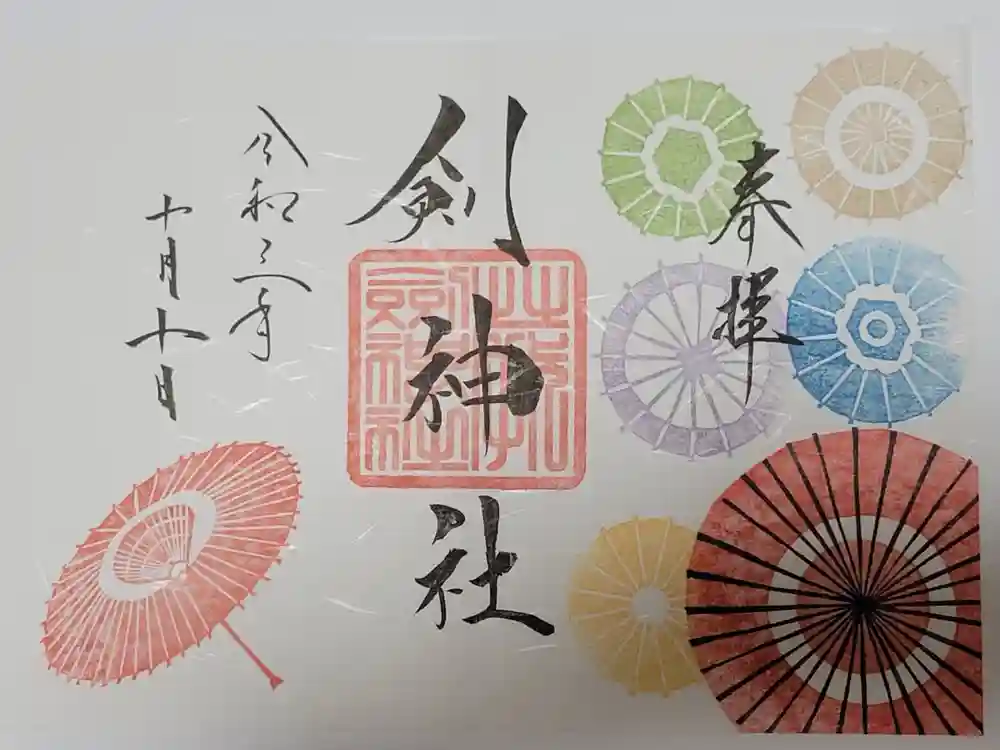 奉拝
剣神社
令和三年
十月十日